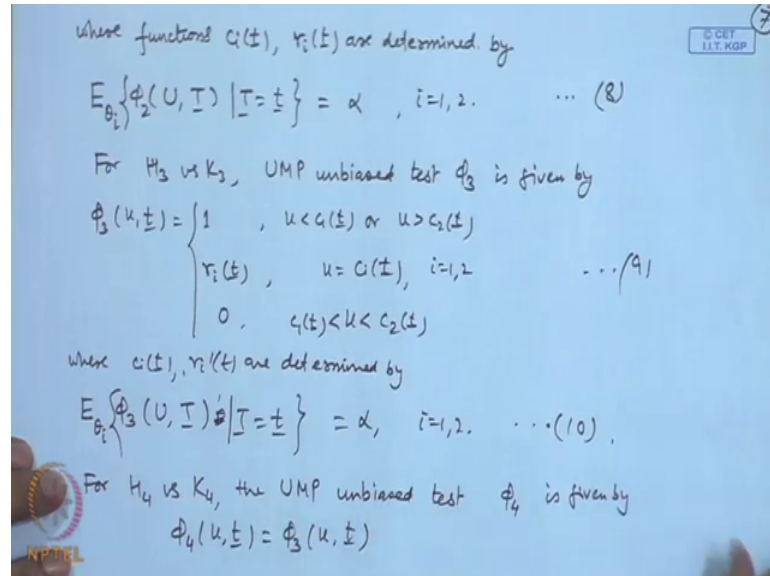 7
© CET
I.I.T. KGP
where functions cᵢ(t), rᵢ(t) are determined by
E_θᵢ {ϕ₂(U, T) | T = t} = α , i=1,2. ... (8)
For H₃ vs K₃, UMP unbiased test ϕ₃ is given by
ϕ₃(u, t) = { 1 , u < c₁(t) or u > c₂(t)
rᵢ(t) , u = cᵢ(t), i=1,2 ... (9)
0 , c₁(t) < u < c₂(t)
where cᵢ(t), rᵢ'(t) are determined by
E_θᵢ {ϕ₃(U, T) | T = t} = α, i=1,2. ... (10).
For H₄ vs K₄, the UMP unbiased test ϕ₄ is given by
ϕ₄(u, t) = ϕ₃(u, t)
NPTEL